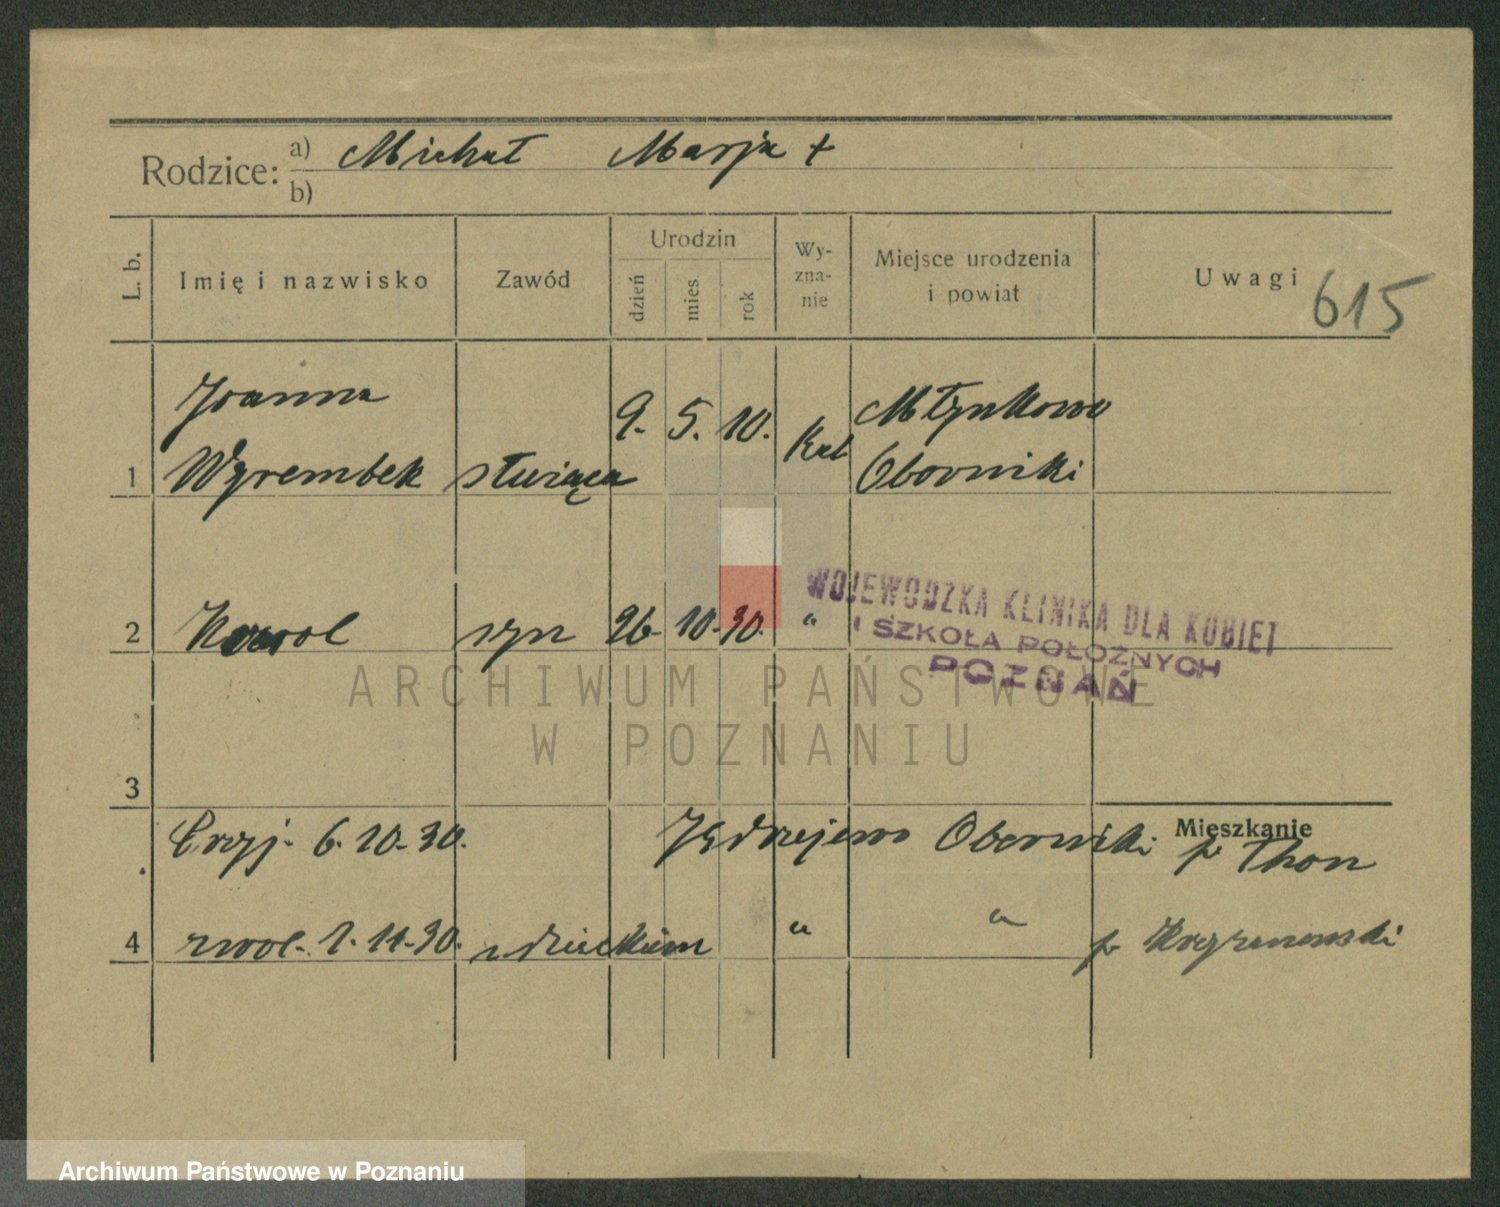 Rodzice: a) Michał Marja +
b)
L. b.
Imię i nazwisko
Zawód
Urodzin
dzień
mies
rok
Wy-
zna-
nie
Miejsce urodzenia
i powiat
Uwagi
615
Joanna
9. 5. 10.
Kat
Młynkowo
1 Wyrembek służąca
Oborniki
2 Karol syn 26. 10. 30. "
WOJEWÓDZKA KLINIKA DLA KOBIET
I SZKOŁA POŁOŻNYCH
POZNAŃ
ARCHIWUM PAŃSTWOWE
W POZNANIU
3
Przyj. 6. 10. 30. Jędrzejewo Oborniki
Mieszkanie
p. Thon
4 zwol. 1. 11. 30. z dzieckiem " "
p.
Archiwum Państwowe w Poznaniu